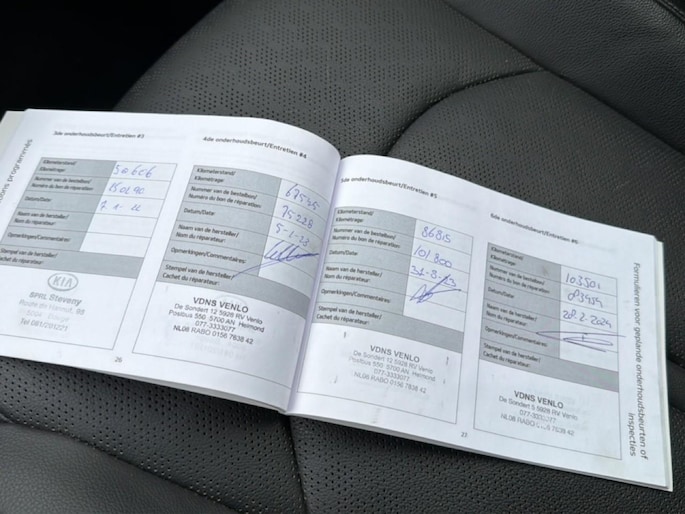 3de onderhoudsbeurt/Entretien #3
Kilometerstand/
Kilométrage:
50606
Nummer van de bestelbon/
Numéro du bon de réparation:
Datum/Date:
Naam van de hersteller/
Nom du réparateur:
Opmerkingen/Commentaires:
Stempel van de hersteller/
Cachet du réparateur:
KIA
SPRL Steveny
Tel 081/201221
26
4de onderhoudsbeurt/Entretien #4
Kilometerstand/
Kilométrage:
67535
Nummer van de bestelbon/
Numéro du bon de réparation:
75228
Datum/Date:
5-1-23
Naam van de hersteller/
Nom du réparateur:
Opmerkingen/Commentaires:
Stempel van de hersteller/
Cachet du réparateur:
VDNS VENLO
De Sondert 12 5928 RV Venlo
Postbus 550 5700 AN Helmond
077-3333077
NL06 RABO 0156 7638 42
5de onderhoudsbeurt/Entretien #5
Kilometerstand/
Kilométrage:
86815
Nummer van de bestelbon/
Numéro du bon de réparation:
101800
Datum/Date:
31-8-23
Naam van de hersteller/
Nom du réparateur:
Opmerkingen/Commentaires:
Stempel van de hersteller/
Cachet du réparateur:
VDNS VENLO
De Sondert 12 5928 RV Venlo
Postbus 550 5700 AN Helmond
077-3333077
NL06 RABO 0156 7638 42
27
6de onderhoudsbeurt/Entretien #6
Kilometerstand/
Kilométrage:
103501
Nummer van de bestelbon/
Numéro du bon de réparation:
Datum/Date:
28-2-2024
Naam van de hersteller/
Nom du réparateur:
Opmerkingen/Commentaires:
Stempel van de hersteller/
Cachet du réparateur:
VDNS VENLO
De Sondert 5 5928 RV Venlo
077-3333077
NL06 RABO 0156 7638 42
Formulieren voor geplande onderhoudsbeurten of
inspecties